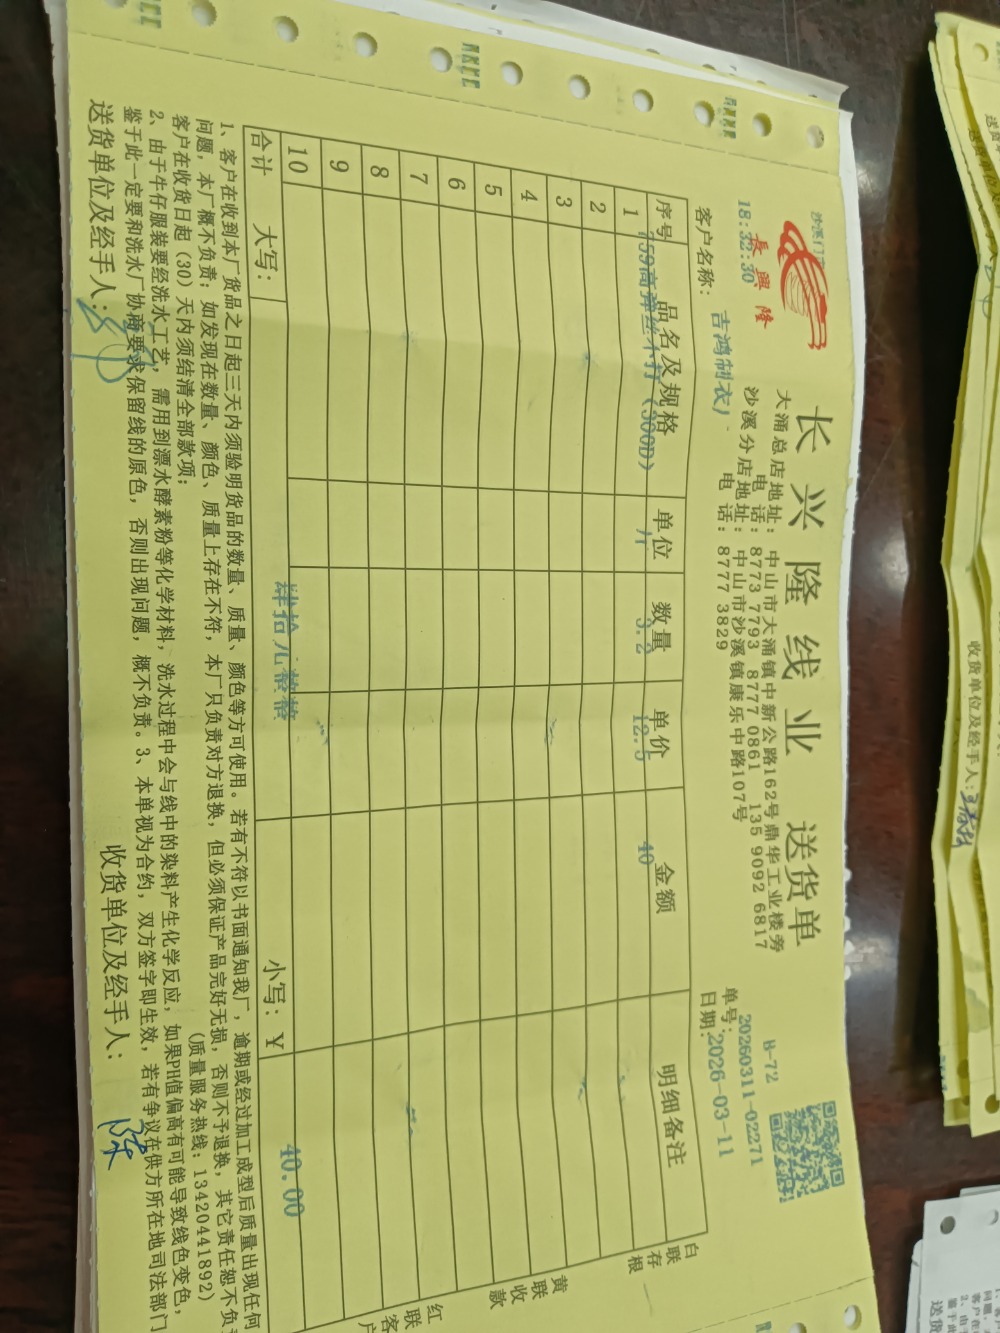 长兴隆线业 送货单
長興隆
18:32:30
大涌总店地址: 中山市大涌镇中新公路162号鼎华工业楼旁
电话: 8773 7793 8777 0861 135 9092 6817
沙溪分店地址: 中山市沙溪镇康乐中路107号
电话: 8777 3829
H-72
单号: 20260311-02271
日期: 2026-03-11
客户名称: 吉鸿制衣
序号 品名及规格 单位 数量 单价 金额 明细备注
1 759高弹丝不打(300D) 3.2 12.5 40
2
3
4
5
6
7
8
9
10
合计 大写: 肆拾元整整 小写: ¥ 40.00
白联存根
黄联收款
红联客户
1、客户在收到本厂货品之日起三天内须验明货品的数量、质量、颜色等方可使用。若有不符以书面通知我厂, 逾期或经过加工成型后质量出现任何
问题, 本厂概不负责; 如发现在数量、颜色、质量上存在不符, 本厂只负责对方退换, 但必须保证产品完好无损, 否则不予退换, 其它责任恕不负
客户在收货日起 (30) 天内须结清全部款项; (质量服务热线: 13420441892)
2、由于牛仔服装要经洗水工艺, 需用到漂水酵素粉等化学材料, 洗水过程中会与线中的染料产生化学反应, 如果PH值偏高有可能导致线色变色,
鉴于此一定要和洗水厂协商要求保留线的原色, 否则出现问题, 概不负责。3、本单视为合约, 双方签字即生效, 若有争议在供方所在地司法部门
送货单位及经手人: 收货单位及经手人:
收货单位及经手人: